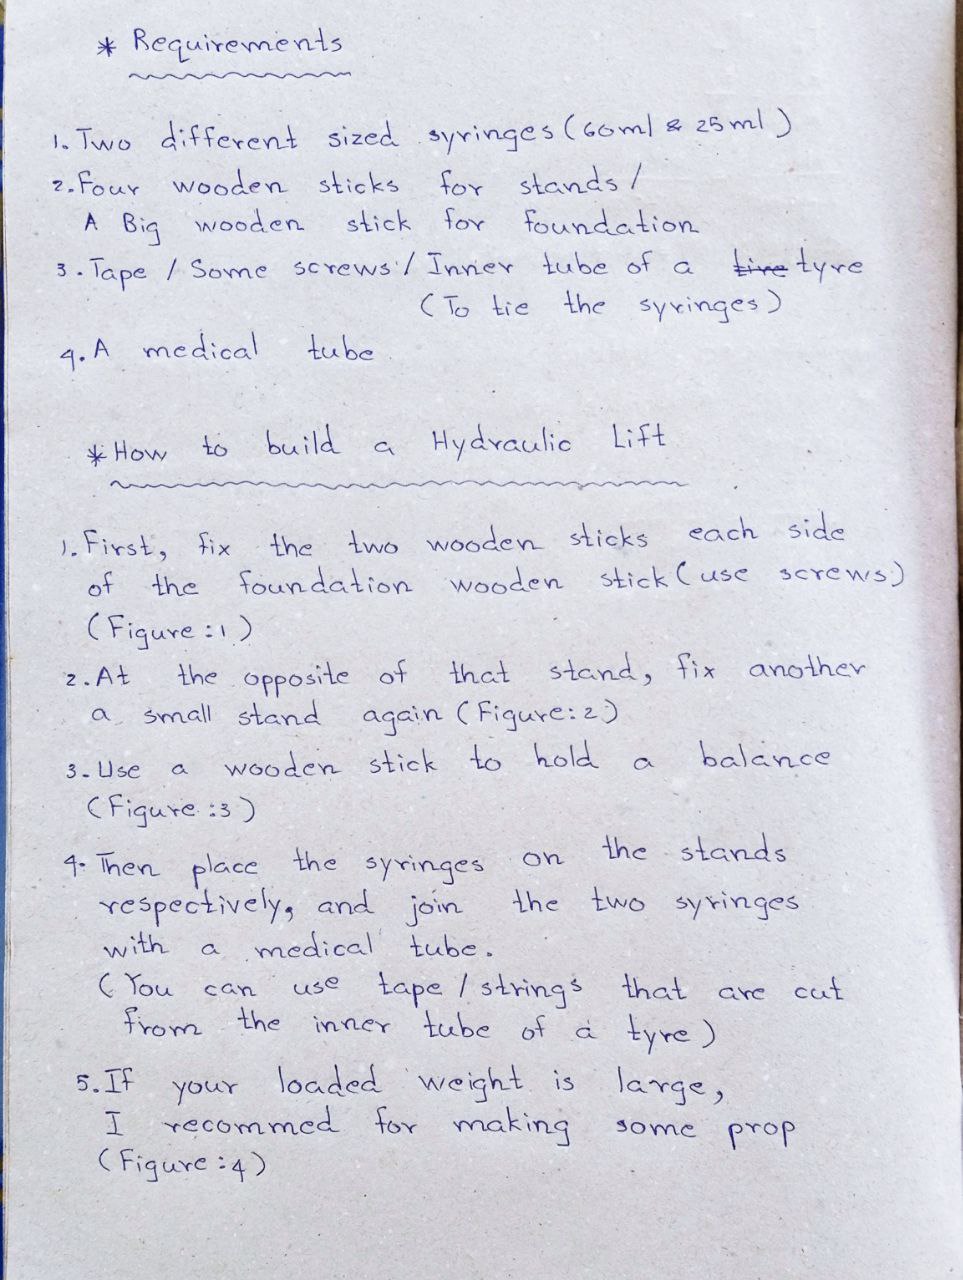 * Requirements
1. Two different sized syringes (60ml & 25ml)
2. Four wooden sticks for stands /
A Big wooden stick for foundation
3. Tape / Some screws / Inner tube of a tire tyre
(To tie the syringes)
4. A medical tube
* How to build a Hydraulic Lift
1. First, fix the two wooden sticks each side
of the foundation wooden stick (use screws)
(Figure:1)
2. At the opposite of that stand, fix another
a small stand again (Figure:2)
3. Use a wooden stick to hold a balance
(Figure:3)
4. Then place the syringes on the stands
respectively, and join the two syringes
with a medical tube.
(You can use tape / strings that are cut
from the inner tube of a tyre)
5. If your loaded weight is large,
I recommed for making some prop
(Figure:4)